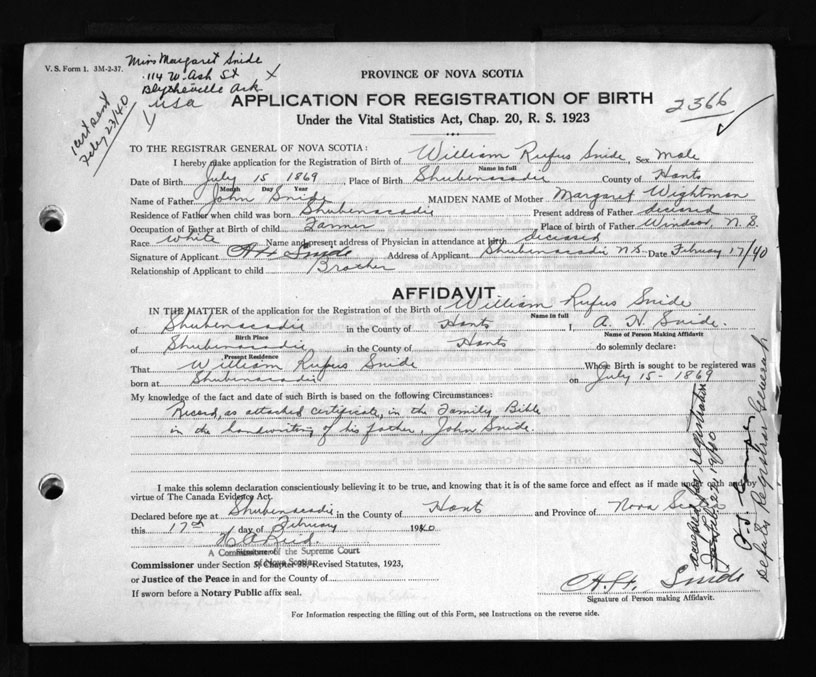 V. S. Form 1. 3M-2-37.
Miss Margaret Snide
114 W. Ash St X
Blytheville Ark
USA
1 cert sent
Feby 23/40
PROVINCE OF NOVA SCOTIA
APPLICATION FOR REGISTRATION OF BIRTH
2366
Under the Vital Statistics Act, Chap. 20, R. S. 1923
TO THE REGISTRAR GENERAL OF NOVA SCOTIA:
I hereby make application for the Registration of Birth of William Rufus Snide, Sex Male
Name in full
Date of Birth July 15 1869, Place of Birth Shubenacadie County of Hants
Month Day Year
Name of Father John Snide MAIDEN NAME of Mother Margaret Wightman
Residence of Father when child was born Shubenacadie Present address of Father deceased
Occupation of Father at Birth of child Farmer Place of birth of Father Windsor, N.S.
Race White Name and present address of Physician in attendance at birth deceased
Signature of Applicant A H Snide Address of Applicant Shubenacadie N.S. Date February 17/40
Relationship of Applicant to child Brother
AFFIDAVIT
IN THE MATTER of the application for the Registration of the Birth of William Rufus Snide
Name in full
of Shubenacadie in the County of Hants I, A. H. Snide.
Birth Place Name of Person Making Affidavit
of Shubenacadie in the County of Hants do solemnly declare:
Present Residence
That William Rufus Snide Whose Birth is sought to be registered was
born at Shubenacadie on July 15 - 1869
My knowledge of the fact and date of such Birth is based on the following Circumstances:
Record, as attached certificate, in the Family Bible
in the handwriting of his father, John Snide.
I make this solemn declaration conscientiously believing it to be true, and knowing that it is of the same force and effect as if made under oath and by
virtue of The Canada Evidence Act.
Declared before me at Shubenacadie in the County of Hants and Province of Nova Scotia
this 17th day of February 1940
H A Reid
A Commissioner of the Supreme Court
of Nova Scotia
Commissioner under Section 3, Chapter 38, Revised Statutes, 1923,
or Justice of the Peace in and for the County of
If sworn before a Notary Public affix seal.
A. H. Snide
Signature of Person making Affidavit.
For Information respecting the filling out of this Form, see Instructions on the reverse side.
accepted for registration
Deputy Registrar General